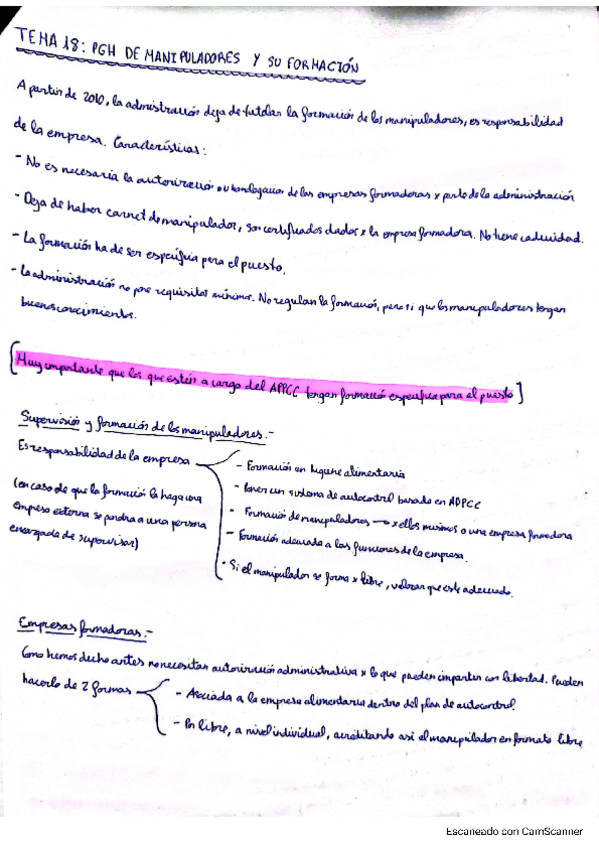 TEMA 18: PGH DE MANIPULADORES Y SU FORMACIÓN
A partir de 2010, la administración deja de tutelar la formación de los manipuladores, es responsabilidad
de la empresa. Características:
- No es necesaria la autorización u homologación de las empresas formadoras x parte de la administración
- Deja de haber carnet de manipulador, son certificados dados x la empresa formadora. No tiene caducidad.
- La formación ha de ser específica para el puesto.
- La administración no pone requisitos mínimos. No regulan la formación, pero si que los manipuladores tengan
buenos conocimientos.
[Muy importante que los que estén a cargo del APPCC tengan formación específica para el puesto]
Supervisión y formación de los manipuladores.-
Es responsabilidad de la empresa
(en caso de que la formación la haga una
empresa externa se pondra a una persona
encargada de supervisar)
- Formación en higiene alimentaria
- Poner un sistema de autocontrol basado en APPCC
- Formación de manipuladores → x ellos mismos o una empresa formadora
- Formación adecuada a las funciones de la empresa.
- Si el manipulador se forma x libre, valorar que este adecuado.
Empresas formadoras.-
Como hemos dicho antes no necesitan autorización administrativa x lo que pueden impartir con libertad. Pueden
hacerlo de 2 formas
- Asociada a la empresa alimentaria dentro del plan de autocontrol.
- Por libre, a nivel individual, acreditando asi el manipulador en formato libre
Escaneado con CamScanner